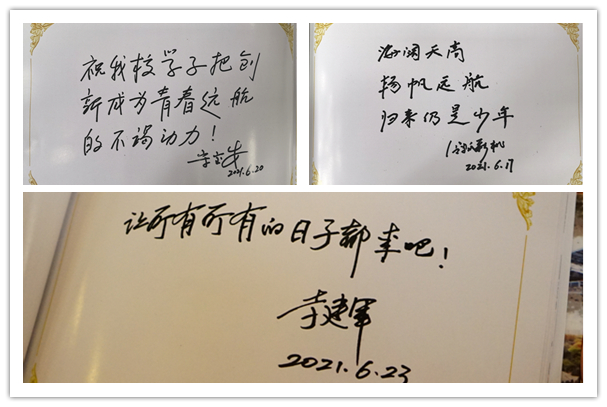 祝我校学子把创
新成为青春远航
的不竭动力！
2021.6.20
海阔天高
扬帆远航
归来仍是少年
2021.6.17
让所有所有的日子都来吧！
李建军
2021.6.23